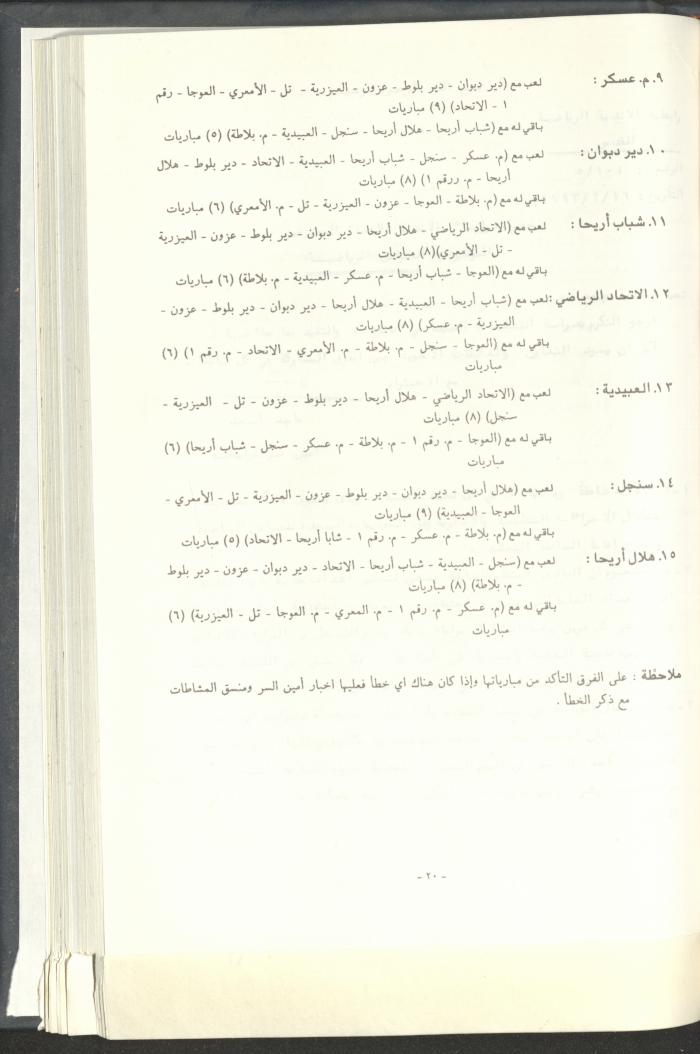 ٩. م. عسكر : لعب مع (دير دبوان - دير بلوط - عزون - العيزرية - تل - الأمعري - العوجا - رقم
١ - الاتحاد) (٩) مباريات
باقي له مع (شباب أريحا - هلال أريحا - سنجل - العبيدية - م. بلاطة) (٥) مباريات
١٠. دير دبوان : لعب مع (م. عسكر - سنجل - شباب أريحا - العبيدية - الاتحاد - دير بلوط - هلال
أريحا - م. ررقم ١) (٨) مباريات
باقي له مع (م. بلاطة - العوجا - عزون - العيزرية - تل - م. الأمعري) (٦) مباريات
١١. شباب أريحا : لعب مع (الاتحاد الرياضي - هلال أريحا - دير دبوان - دير بلوط - عزون - العيزرية
- تل - الأمعري)(٨) مباريات
باقي له مع (العوجا - شباب أريحا - م. عسكر - العبيدية - م. بلاطة) (٦) مباريات
١٢. الاتحاد الرياضي : لعب مع (شباب أريحا - العبيدية - هلال أريحا - دير دبوان - دير بلوط - عزون -
العيزرية - م. عسكر) (٨) مباريات
باقي له مع (العوجا - سنجل - م. بلاطة - م. الأمعري - الاتحاد - م. رقم ١) (٦)
مباريات
١٣. العبيدية : لعب مع (الاتحاد الرياضي - هلال أريحا - دير بلوط - عزون - تل - العيزرية -
سنجل) (٨) مباريات
باقي له مع (العوجا - م. رقم ١ - م. بلاطة - م. عسكر - سنجل - شباب أريحا) (٦)
مباريات
١٤. سنجل : لعب مع (هلال أريحا - دير دبوان - دير بلوط - عزون - العيزرية - تل - الأمعري -
العوجا - العبيدية) (٩) مباريات
باقي له مع (م. بلاطة - م. عسكر - م. رقم ١ - شابا أريحا - الاتحاد) (٥) مباريات
١٥. هلال أريحا : لعب مع (سنجل - العبيدية - شباب أريحا - الاتحاد - دير دبوان - عزون - دير بلوط
- م. بلاطة) (٨) مباريات
باقي له مع (م. عسكر - م. رقم ١ - م. المعري - م. العوجا - تل - العيزرية) (٦)
مباريات
ملاحظة : على الفرق التأكد من مبارياتها وإذا كان هناك اي خطأ فعليها اخبار أمين السر ومنسق المشاطات
مع ذكر الخطأ .
- ٢٠ -